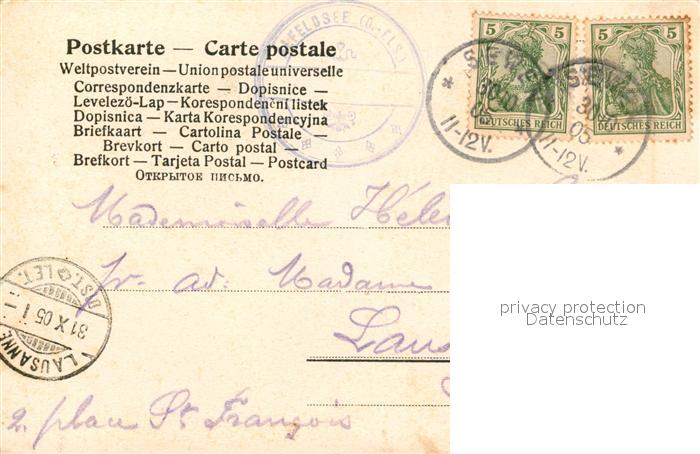 FELDSEE (O.-ELS.)
5 5 5 5
DEUTSCHES REICH DEUTSCHES REICH
SEWEN
30.10
11-12V.
30.10
05
11-12V.
Postkarte — Carte postale
Weltpostverein — Union postale universelle
Correspondenzkarte — Dopisnice —
Levelező-Lap — Korespondenční listek
Dopisnica — Karta Korespondencyjna
Briefkaart — Cartolina Postale —
Brevkort — Carto postal —
Brefkort — Tarjeta Postal — Postcard
Открытое письмо.
Mademoiselle Hélè
pr. ad: Madame
Laus
2, place St François
LAUSANNE
31 X 05 1-
EXP. LET.
privacy protection
Datenschutz